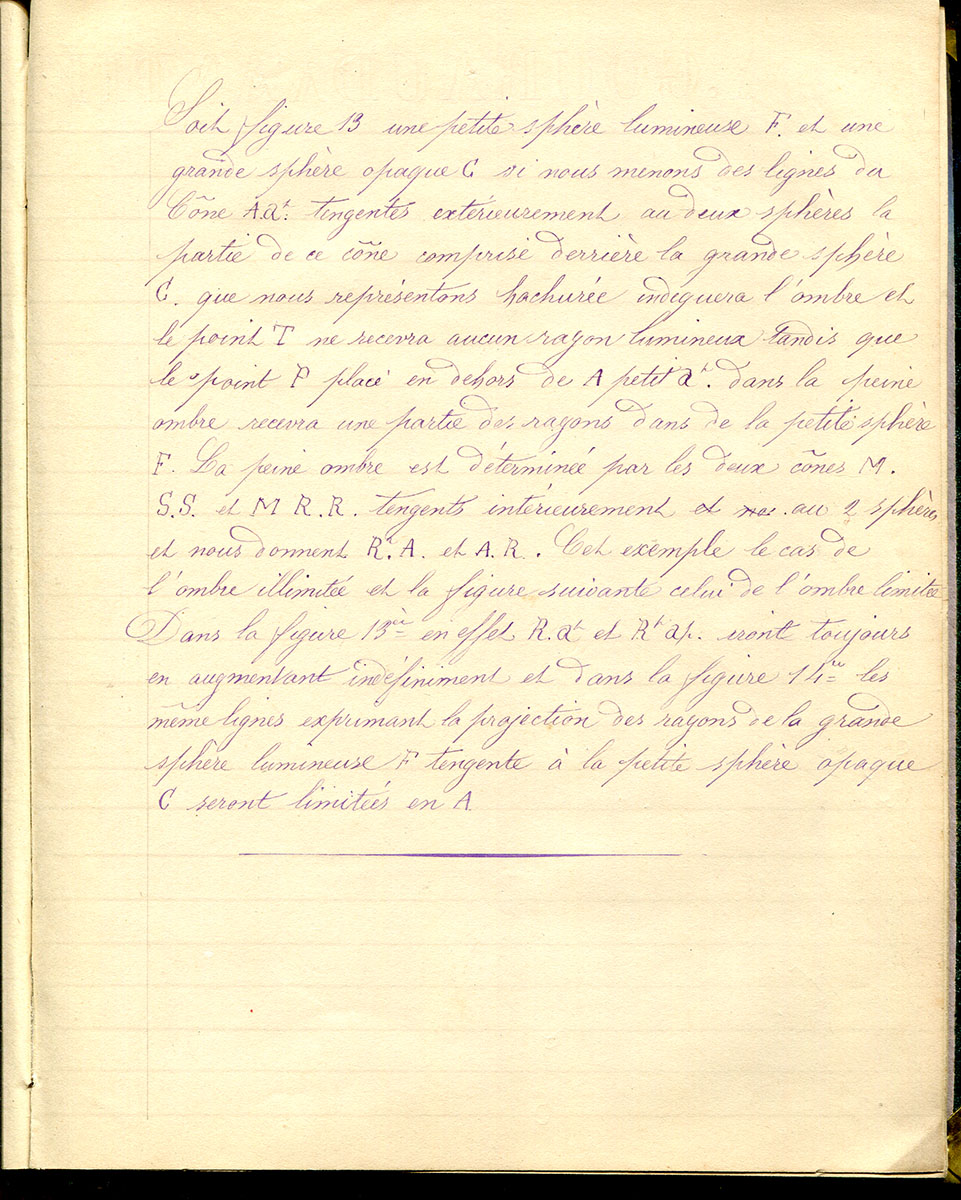 Soit figure 13 une petite sphère lumineuse F. et une
grande sphère opaque C si nous menons des lignes du
Cône A.a^t. tingentes extérieurement au deux sphères la
partie de ce cône comprise derrière la grande sphère
C. que nous représentons hachurée indiquera l'ombre et
le point T ne recevra aucun rayon lumineux tandis que
le point P placé en dehors de A petit a^t. dans la peine
ombre recevra une partie des rayons dans de la petite sphère
F. La peine ombre est déterminée par les deux cônes M.
S.S. et M R.R. tengents intérieurement et au 2 sphères
et nous donnent R^t.A. et A.R. Cet exemple le cas de
l'ombre illimitée et la figure suivante celui de l'ombre limitée
Dans la figure 13 en effet R.a^t et R^t ap. iront toujours
en augmentant indéfiniment et dans la figure 14 les
même lignes exprimant la projection des rayons de la grande
sphère lumineuse F tengente à la petite sphère opaque
C seront limitées en A